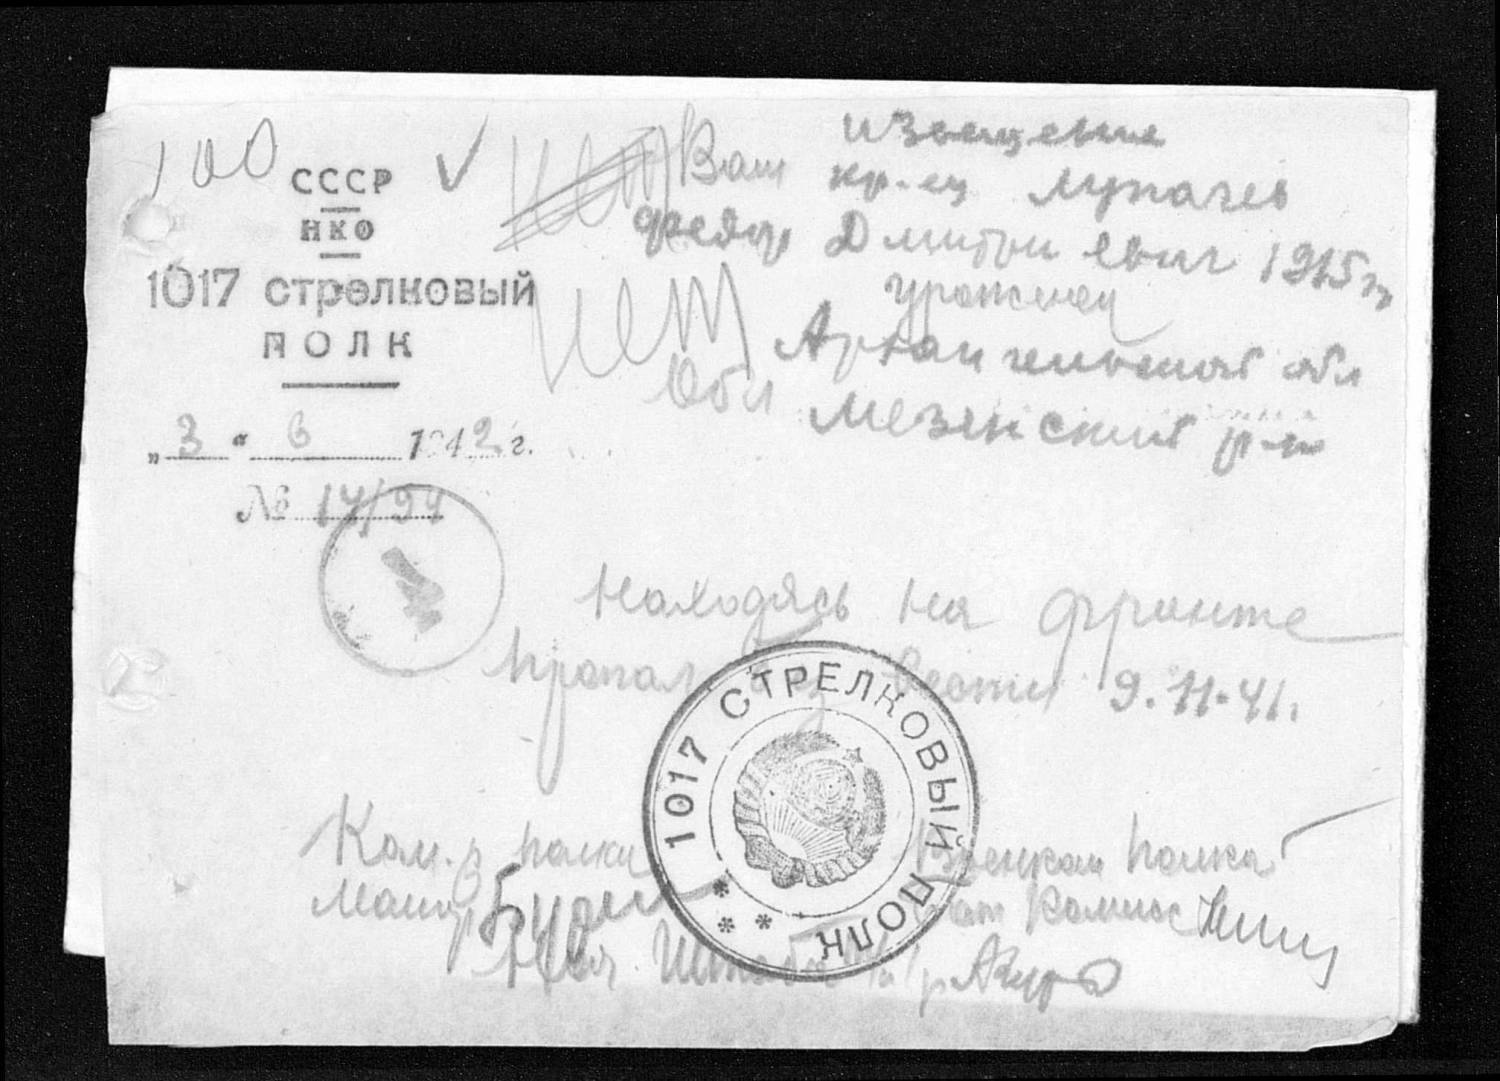 100
СССР
НКО
1017 стрелковый
ПОЛК
„3“ 6 1942 г.
№ 17/94
нет
извещение
Ваш кр-ец Лупачев
Федор Дмитриевич 1915 г.
уроженец
нет
Архангельской обл
обл Мезенский р-н
находясь на фронте
пропал без вести 9.11.41г.
1017 СТРЕЛКОВЫЙ ПОЛК
Ком-р полка
Военком полка
Майор
Бат Комисс
Нач Штаба